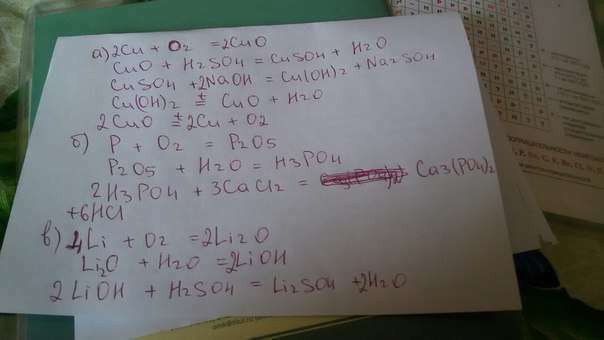 а) 2Cu + O2 = 2CuO
CuO + H2SO4 = CuSO4 + H2O
CuSO4 + 2NaOH = Cu(OH)2 + Na2SO4
Cu(OH)2 t= CuO + H2O
2CuO t= 2Cu + O2
б) P + O2 = P2O5
P2O5 + H2O = H3PO4
2H3PO4 + 3CaCl2 = Ca3(PO4)2
+6HCl
в) 4Li + O2 = 2Li2O
Li2O + H2O = 2LiOH
2LiOH + H2SO4 = Li2SO4 + 2H2O